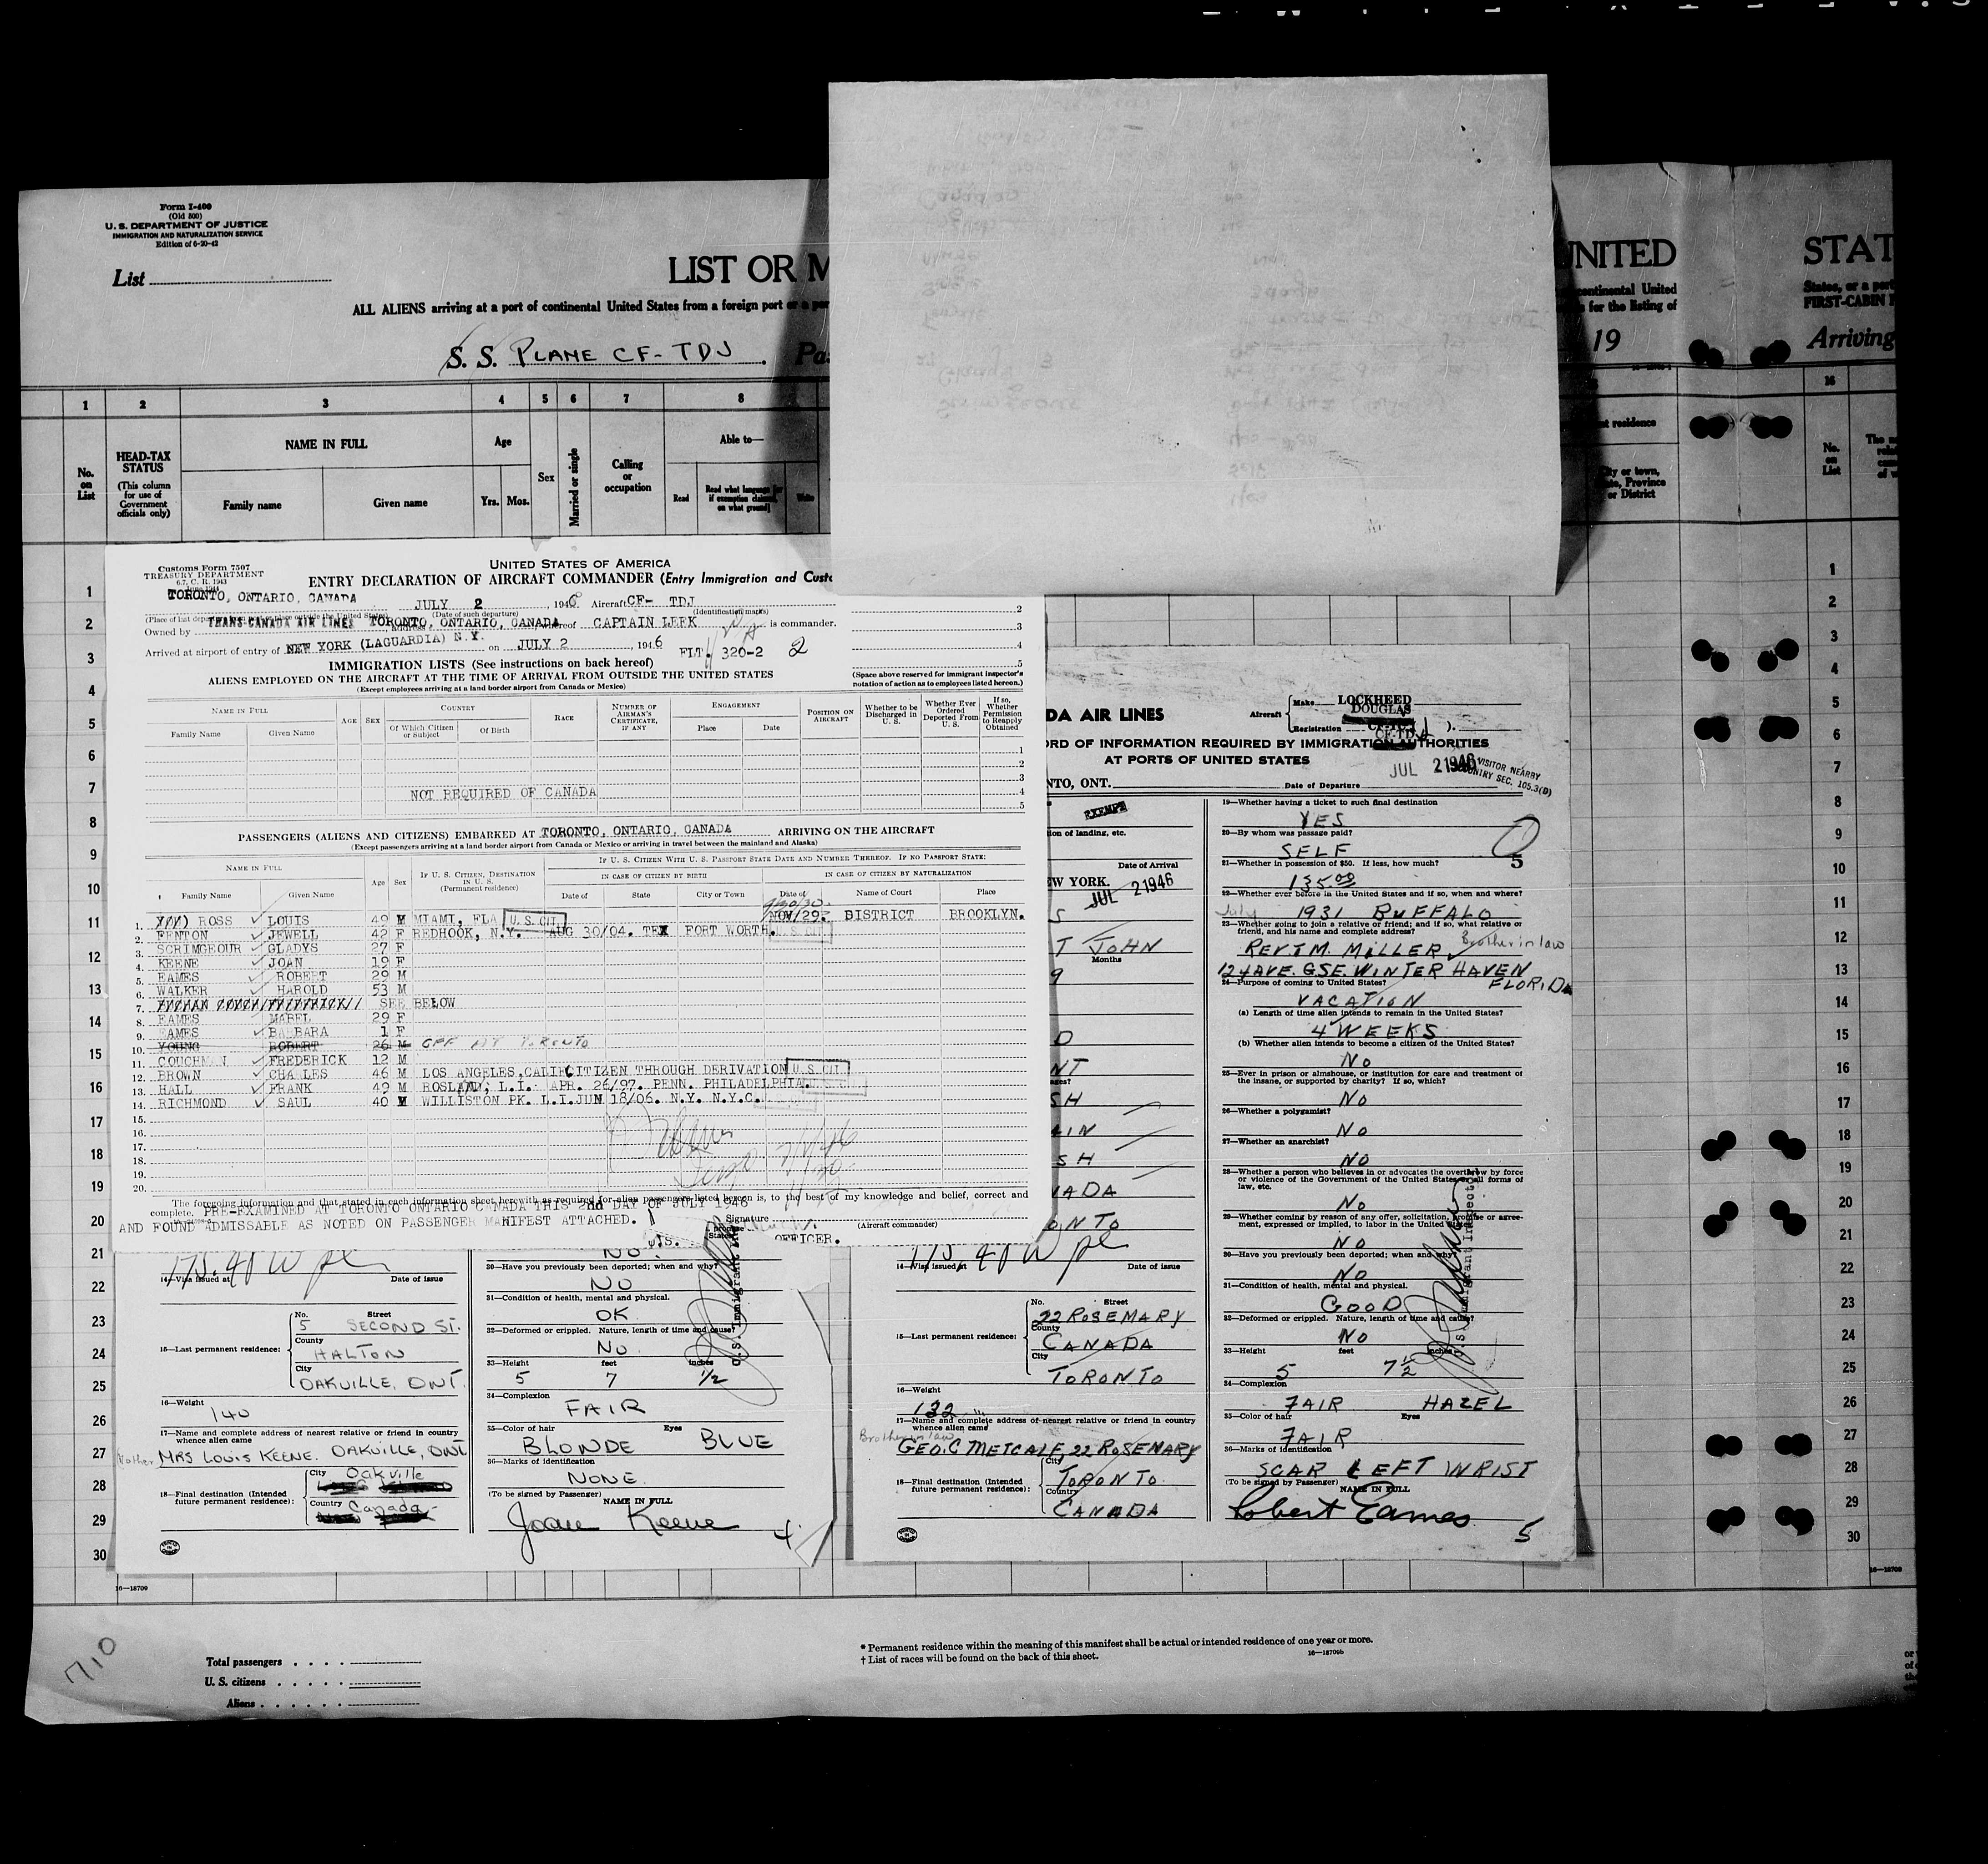 Form I-400
(Old 500)
U. S. DEPARTMENT OF JUSTICE
IMMIGRATION AND NATURALIZATION SERVICE
Edition of 6-20-42
List
LIST OR M
UNITED
STAT
ALL ALIENS arriving at a port of continental United States from a foreign port or a
continental United
for the listing of
States, or a port
FIRST-CABIN
S. S. PLANE CF-TDJ.
19
Arriving
1 2 3 4 5 6 7 8
16
No. on List
HEAD-TAX STATUS
(This column for use of Government officials only)
NAME IN FULL
Family name
Given name
Age
Yrs. Mos.
Sex
Married or single
Calling or occupation
Able to—
Read
Read what language [or if exemption claimed, on what ground]
Write
residence
City or town, State, Province or District
No. on List
Customs Form 7507
TREASURY DEPARTMENT
UNITED STATES OF AMERICA
ENTRY DECLARATION OF AIRCRAFT COMMANDER (Entry Immigration and Custo
TORONTO, ONTARIO, CANADA JULY 2, 1946 Aircraft CF- TDJ
(Date of such departure) (Identification marks)
Owned by TRANS-CANADA AIR LINES TORONTO, ONTARIO, CANADA whereof CAPTAIN LEEK is commander.
Arrived at airport of entry of NEW YORK (LAGUARDIA) N.Y. on JULY 2, 1946 FLT. 320-2 2
IMMIGRATION LISTS (See instructions on back hereof)
ALIENS EMPLOYED ON THE AIRCRAFT AT THE TIME OF ARRIVAL FROM OUTSIDE THE UNITED STATES
(Except employees arriving at a land border airport from Canada or Mexico)
(Space above reserved for immigrant inspector's notation of action as to employees listed hereon.)
NAME IN FULL
Family Name Given Name
AGE SEX
COUNTRY
Of Which Citizen or Subject Of Birth
RACE
NUMBER OF AIRMAN'S CERTIFICATE, IF ANY
ENGAGEMENT
Place Date
POSITION ON AIRCRAFT
Whether to be Discharged in U. S.
Whether Ever Ordered Deported From U. S.
If so, Whether Permission to Reapply Obtained
NOT REQUIRED OF CANADA
PASSENGERS (ALIENS AND CITIZENS) EMBARKED AT TORONTO, ONTARIO, CANADA ARRIVING ON THE AIRCRAFT
(Except passengers arriving at a land border airport from Canada or Mexico or arriving in travel between the mainland and Alaska)
NAME IN FULL
Family Name Given Name
Age Sex
IF U. S. CITIZEN, DESTINATION IN U. S. (Permanent residence)
IF U. S. CITIZEN WITH U. S. PASSPORT STATE DATE AND NUMBER THEREOF. IF NO PASSPORT STATE:
IN CASE OF CITIZEN BY BIRTH
IN CASE OF CITIZEN BY NATURALIZATION
Date of State City or Town Date of Name of Court Place
1. ROSS LOUIS 49 M MIAMI, FLA U.S. CIT. NOV/29? DISTRICT BROOKLYN.
2. FENTON JEWELL 42 F REDHOOK, N.Y. AUG 30/04. TEX FORT WORTH.
3. SCRIMGEOUR GLADYS 27 F
4. KEENE JOAN 19 F
5. EAMES ROBERT 29 M
6. WALKER HAROLD 53 M
7. SEE BELOW
8. EAMES MABEL 29 F
9. EAMES BARBARA 1 F
10. YOUNG ROBERT 26 M OFF AT TORONTO
11. COUCHMAN FREDERICK 12 M
12. BROWN CHARLES 46 M LOS ANGELES, CALIF CITIZEN THROUGH DERIVATION U.S. CIT.
13. HALL FRANK 49 M ROSLAND, L.I. APR. 26/97. PENN. PHILADELPHIA.
14. RICHMOND SAUL 40 M WILLISTON PK. L.I. JUN 18/06. N.Y. N.Y.C.
15.
16.
17.
18.
19.
20.
The foregoing information and that stated in each information sheet herewith as required for alien passengers listed hereon is, to the best of my knowledge and belief, correct and complete.
PRE-EXAMINED AT TORONTO ONTARIO CANADA THIS 2nd DAY OF JULY 1946
AND FOUND ADMISSABLE AS NOTED ON PASSENGER MANIFEST ATTACHED.
Signature
(Aircraft commander)
U.S. OFFICER.
NO.
14—Visa issued at Date of issue
15—Last permanent residence:
No. Street
5 SECOND ST.
County
HALTON
City
OAKVILLE, ONT.
16—Weight
140
17—Name and complete address of nearest relative or friend in country whence alien came
Mother MRS LOUIS KEENE. OAKVILLE, ONT
18—Final destination (Intended future permanent residence):
City Oakville
Country Canada
30—Have you previously been deported; when and why?
NO
31—Condition of health, mental and physical.
OK
32—Deformed or crippled. Nature, length of time and cause?
NO
33—Height feet inches
5 7 1/2
34—Complexion
FAIR
35—Color of hair Eyes
BLONDE BLUE
36—Marks of identification
NONE
(To be signed by Passenger)
NAME IN FULL
Joan Keene
4
DA AIR LINES
Aircraft
Make LOCKHEED
DOUGLAS
Registration
CF-TD
ORD OF INFORMATION REQUIRED BY IMMIGRATION AUTHORITIES
AT PORTS OF UNITED STATES
JUL 2 1946
VISITOR NEARBY
COUNTRY SEC. 105.3(D)
NTO, ONT.
Date of Departure
EXEMPT
ion of landing, etc.
Date of Arrival
EW YORK.
JUL 2 1946
T JOHN
Months
9
NADA
ONTO
14—Visa issued at Date of issue
15—Last permanent residence:
No. Street
22 ROSEMARY
County
CANADA
City
TORONTO
16—Weight
132
17—Name and complete address of nearest relative or friend in country whence alien came
Brother in law
GEO. C METCALF, 22 ROSEMARY
18—Final destination (Intended future permanent residence):
City
TORONTO
Country
CANADA
19—Whether having a ticket to such final destination
YES
20—By whom was passage paid?
SELF
21—Whether in possession of $50. If less, how much?
5
135.00
22—Whether ever before in the United States and if so, when and where?
July 1931 BUFFALO
23—Whether going to join a relative or friend; and if so, what relative or friend, and his name and complete address?
REV. T.M. MILLER Brother in law
124 AVE. G SE. WINTER HAVEN
FLORIDA
24—Purpose of coming to United States?
VACATION
(a) Length of time alien intends to remain in the United States?
4 WEEKS
(b) Whether alien intends to become a citizen of the United States?
NO
25—Ever in prison or almshouse, or institution for care and treatment of the insane, or supported by charity? If so, which?
NO
26—Whether a polygamist?
NO
27—Whether an anarchist?
NO
28—Whether a person who believes in or advocates the overthrow by force or violence of the Government of the United States or all forms of law, etc.
NO
29—Whether coming by reason of any offer, solicitation, promise or agreement, expressed or implied, to labor in the United States.
NO
30—Have you previously been deported; when and why?
NO
31—Condition of health, mental and physical.
GOOD
32—Deformed or crippled. Nature, length of time and cause?
NO
33—Height feet inches
5 7 1/2
34—Complexion
FAIR HAZEL
35—Color of hair Eyes
FAIR
36—Marks of identification
SCAR LEFT WRIST
(To be signed by Passenger)
NAME IN FULL
Robert Eames
5
U.S. Immigrant Inspector
16—18709
710
Total passengers
U. S. citizens
Aliens
* Permanent residence within the meaning of this manifest shall be actual or intended residence of one year or more.
† List of races will be found on the back of this sheet.
16—18709b